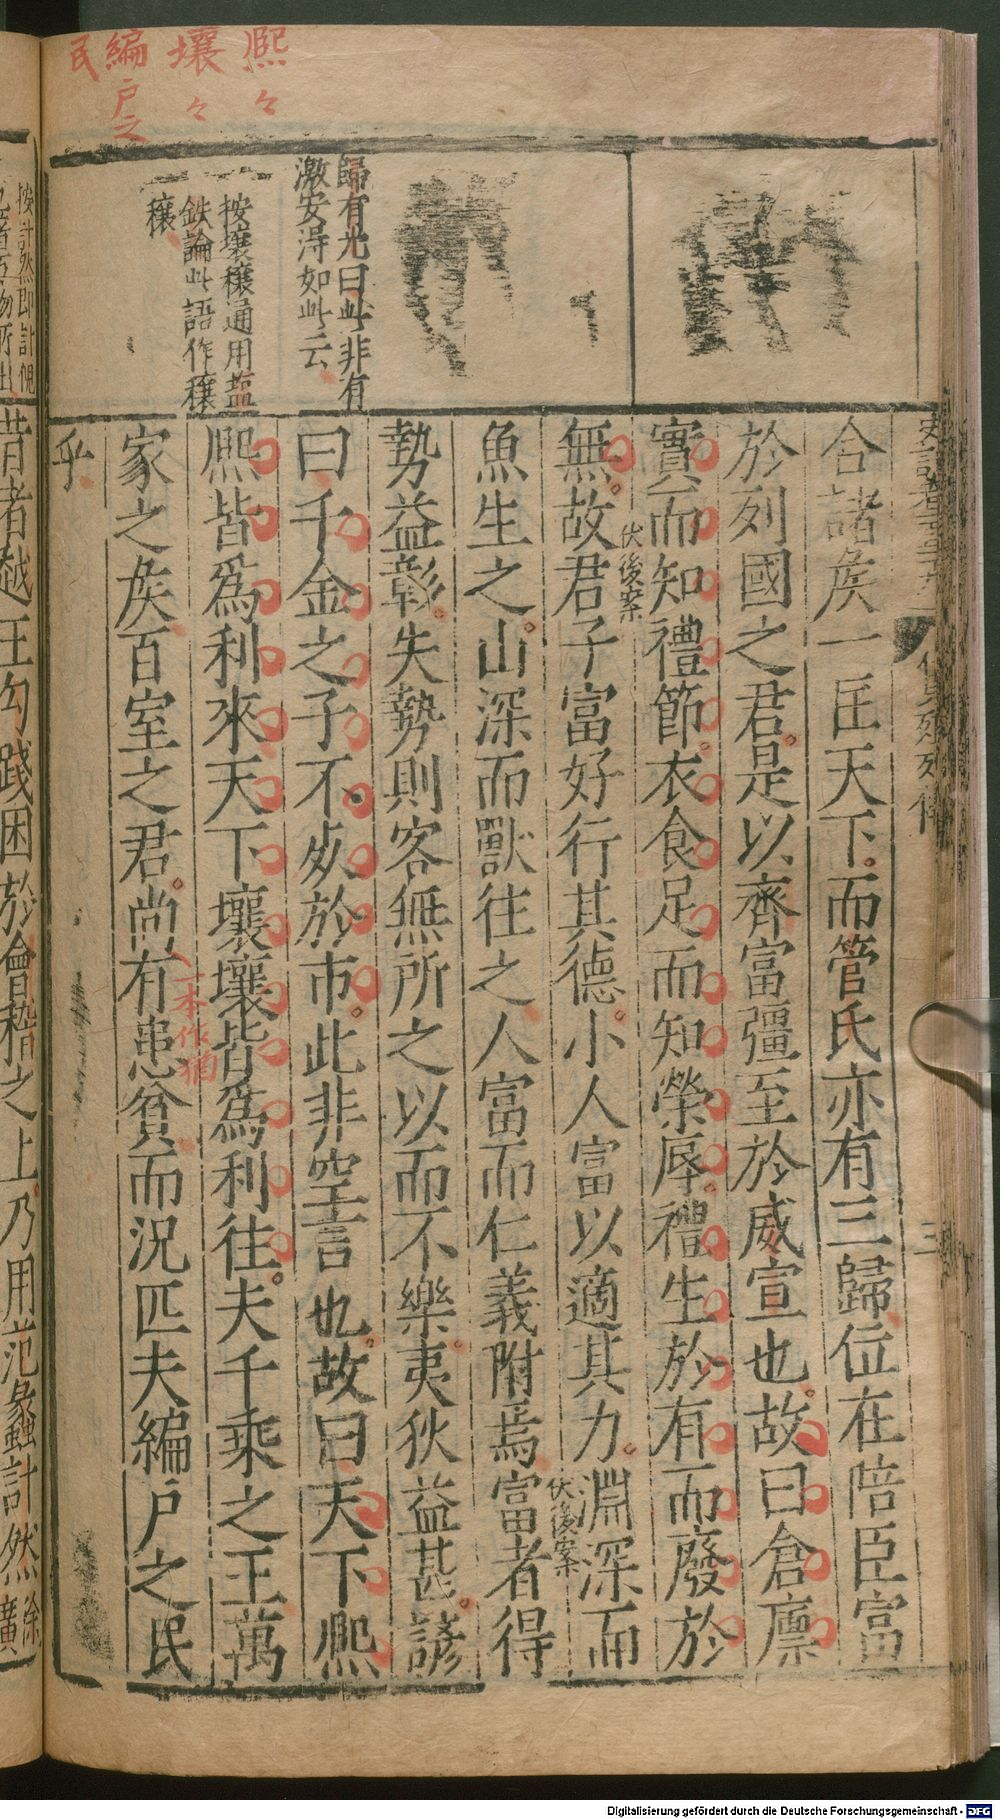 熈々
壤々
編戸之
民
歸有光曰此非有
激安得如此云
按壤穰通用塩
鉄論此語作穰
穰
合諸矦一匡天下而管氏亦有三歸位在陪臣富
於列國之君是以齊富彊至於威宣也故曰倉廪
實而知禮節衣食足而知榮辱禮生於有而廢於
無故君子富好行其德小人富以適其力淵深而
伏後案
魚生之山深而獸往之人富而仁義附焉富者得
伏後案
勢益彰失勢則客無所之以而不樂夷狄益甚諺
曰千金之子不死於市此非空言也故曰天下熈
熈皆爲利來天下壤壤皆爲利往夫千乘之王萬
家之矦百室之君尚有患貧而況匹夫編戸之民
一本作猶
乎
三
按計然即計倪
昔者越王勾踐困於會稽之上乃用范蠡計然
徐
廣
Digitalisierung gefördert durch die Deutsche Forschungsgemeinschaft - DFG